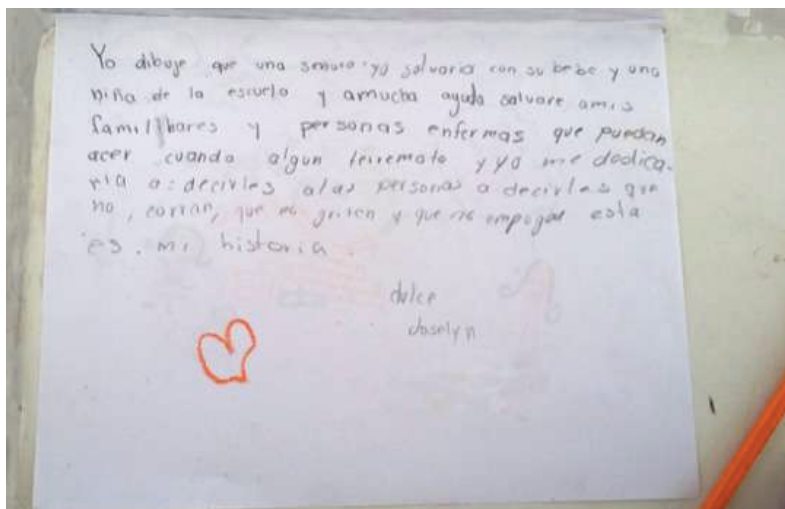 Yo dibuje que una señora yo salvaria con su bebe y una
niña de la escuela y amucha ayuda salvare amis
familihares y personas enfermas que puedan
acer cuando algun terremoto y yo me dedica.
ria a: decirles alas personas a decirles que
no, corran, que no griten y que no empogen esta
es. mi historia.
dulce
Joselyn